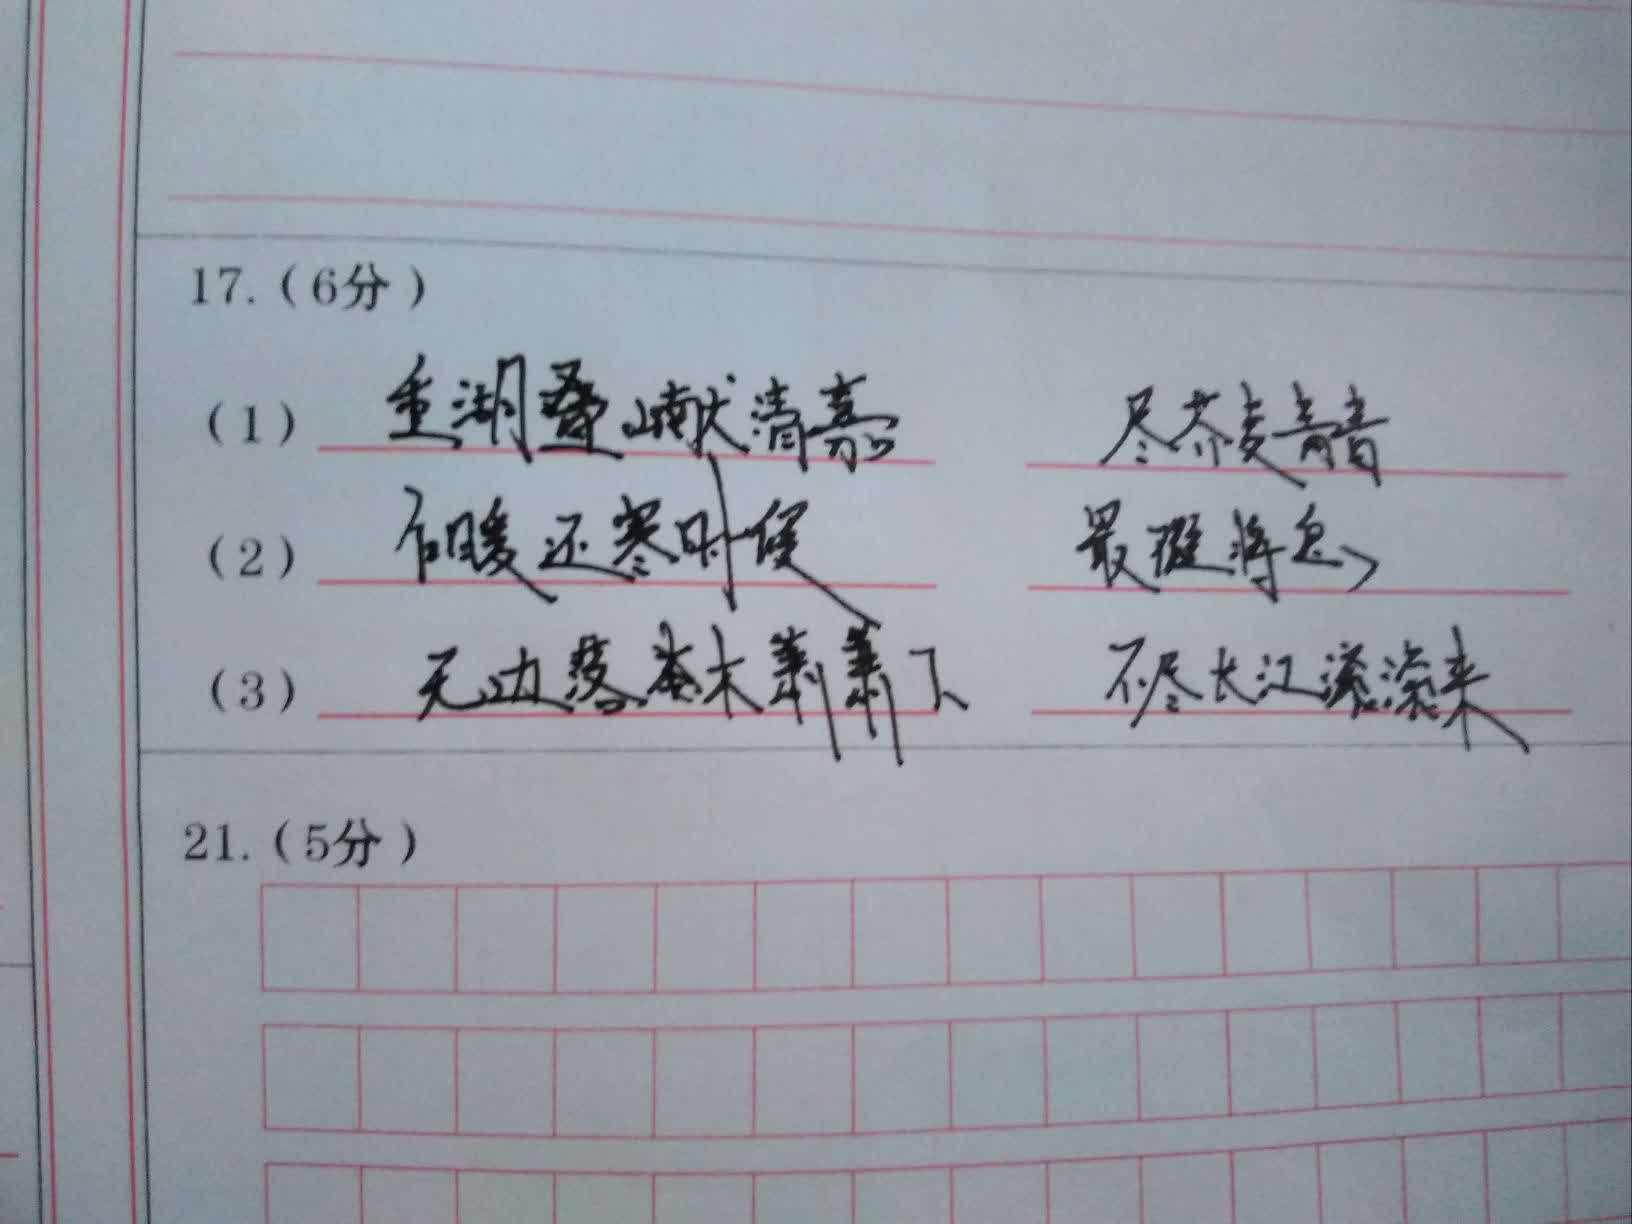 17.（6分）
（1） 重湖叠巘清嘉 尽荠麦青青
（2） 乍暖还寒时候 最难将息
（3） 无边落木萧萧下 不尽长江滚滚来
21.（5分）